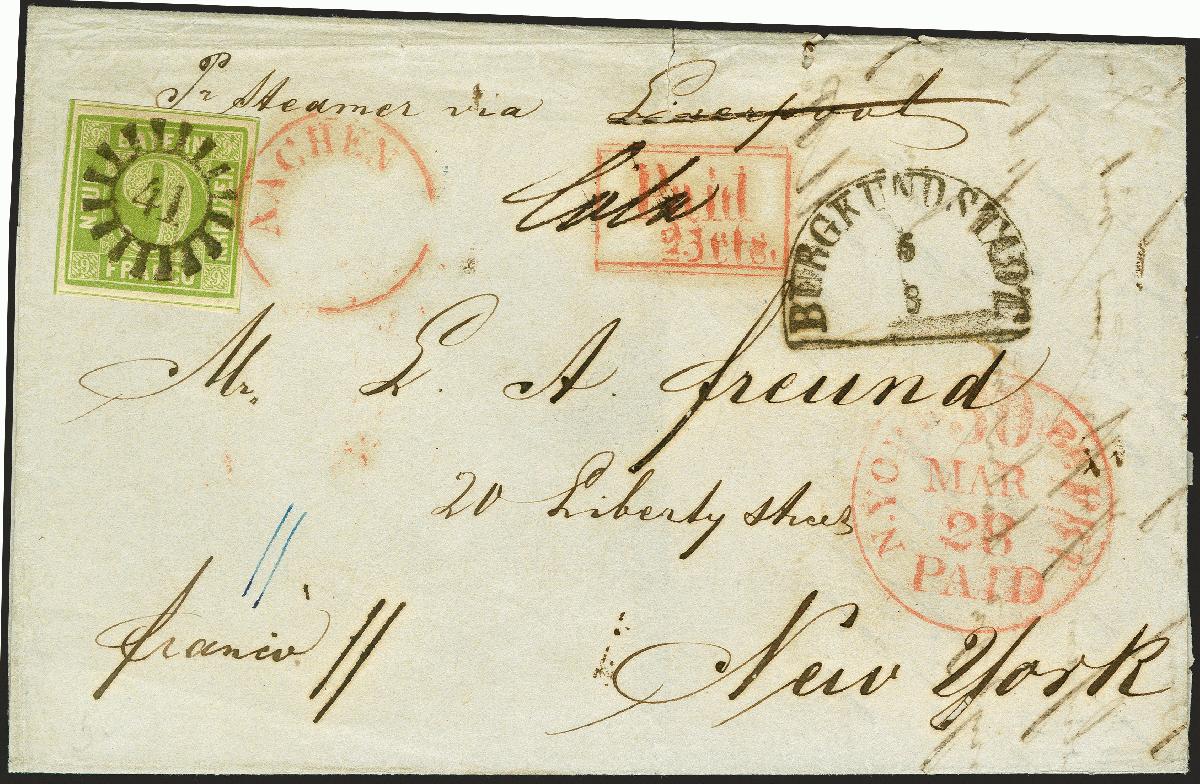 Pr Steamer via Liverpool
Cöln
BAYERN
41
NEUN
FRANCO
AACHEN
Paid
25 cts.
BURGKUNDSTADT
6
3
Mr. L. A. Freund
20 Liberty Street
N.YORK BR. PKT
30
MAR
28
PAID
franco
New York